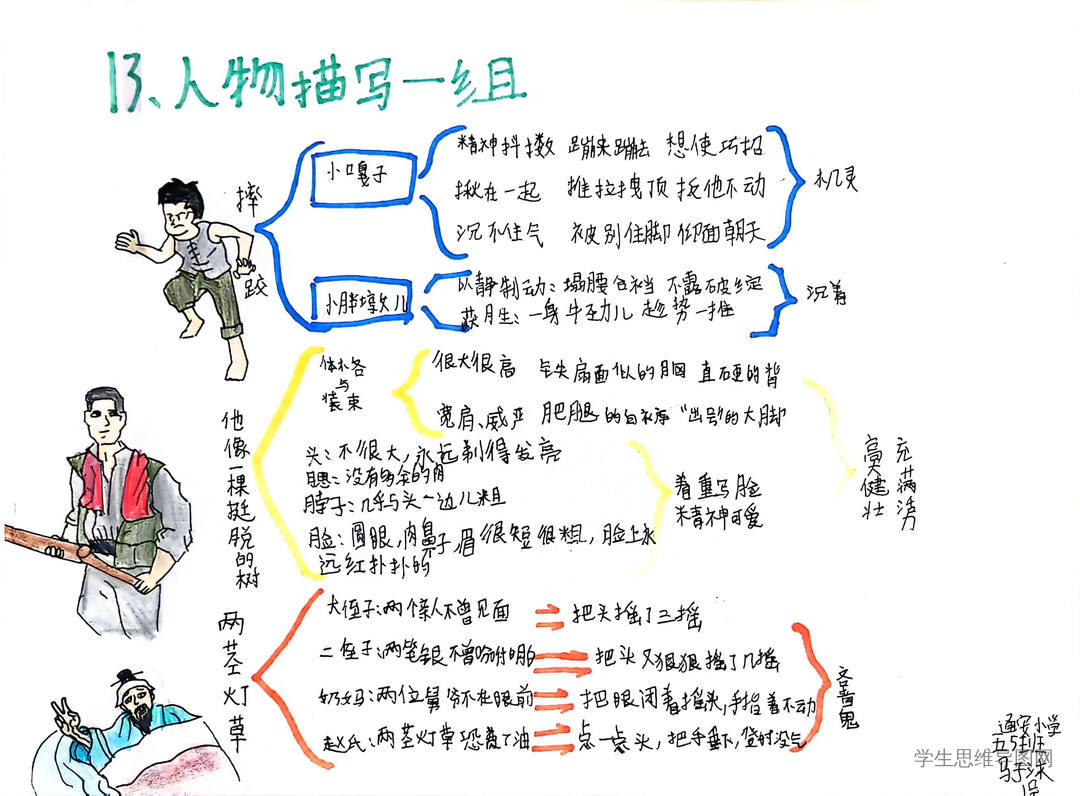 13、人物描写一组
摔跤
小嘎子
精神抖擞 蹦来蹦去 想使巧招
揪在一起 推拉拽顶 扳他不动
沉不住气 被别住脚 仰面朝天
机灵
小胖墩儿
以静制动：塌腰合裆 不露破绽
获胜：一身牛劲儿 趁势一推
沉着
他像一棵挺脱的树
体格与装束
很大很高 铁扇面似的胸 直硬的背
宽肩、威严 肥腿的白裤 "出号"的大脚
头：不很大，永远剃得发亮
腮：没有多余的肉
脖子：几乎与头一边儿粗
脸：圆眼，肉鼻子，眉很短很粗，脸上永
远红扑扑的
着重写脸
精神可爱
高大健壮
充满
两茎灯草
大侄子：两个亲人不曾见面 把头摇了三摇
二侄子：两笔银不曾吩咐明白 把头又狠狠摇了几摇
奶妈：两位舅爷不在眼前 把眼闭着摇头，手指着不动
赵氏：两茎灯草恐费了油 点一点头，把手垂下，登时没气
吝啬鬼
通安小学
五5班
学生思维导图网